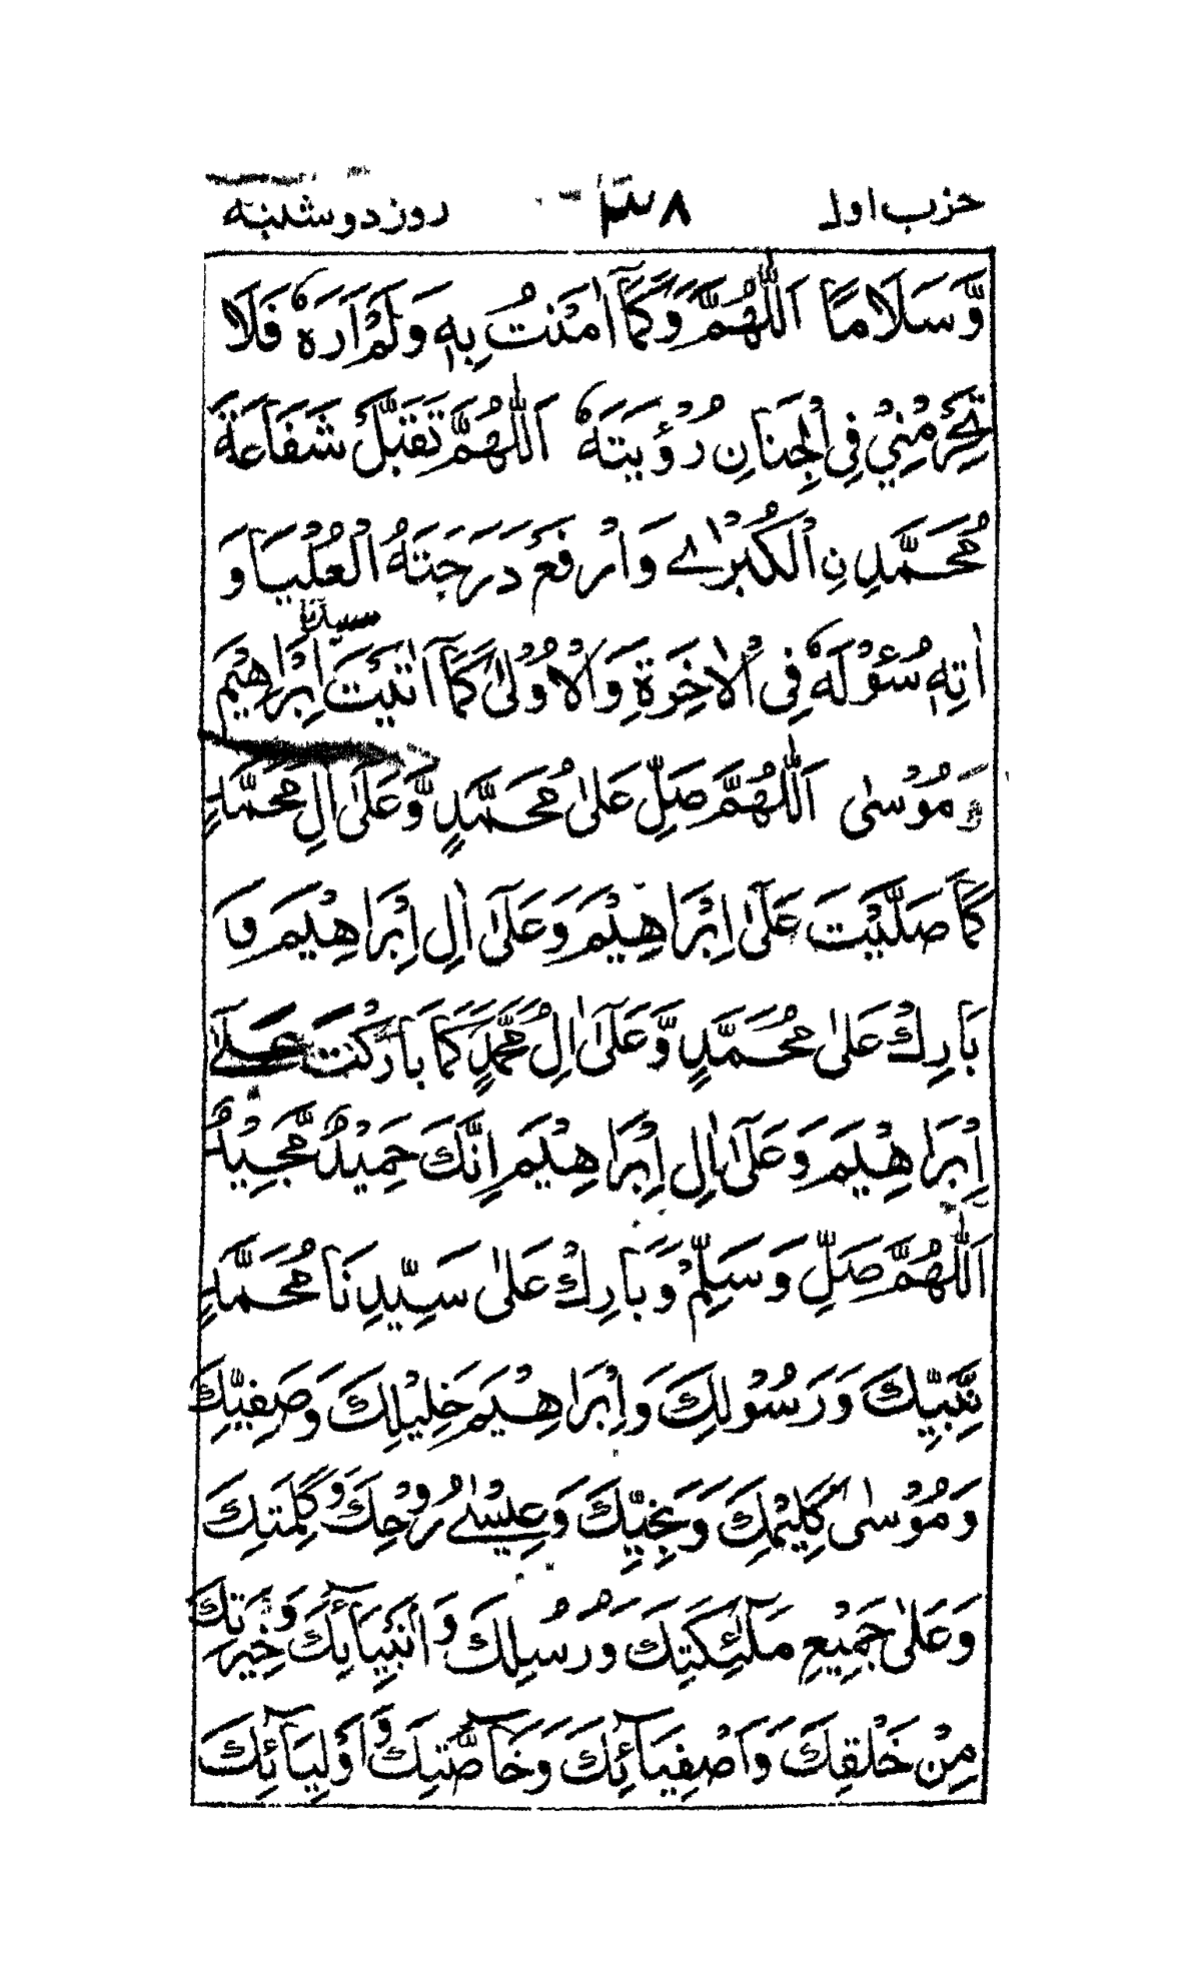 حزب اول ۸۳ روز دوشنبه
وَّسَلَامًا اَللّٰهُمَّ وَكَمَآ اٰمَنْتُ بِهٖ وَلَمْ اَرَهٗ فَلَا
تَحْرِمْنِيْ فِى الْجِنَانِ رُؤْيَتَهٗ اَللّٰهُمَّ تَقَبَّلْ شَفَاعَةَ
مُحَمَّدِ نِ الْكُبْرٰى وَارْفَعْ دَرَجَتَهُ الْعُلْيَا وَ
اٰتِهٖ سُؤْلَهٗ فِى الْاٰخِرَةِ وَالْاُوْلٰى كَمَآ اٰتَيْتَ سيدنا اِبْرَاهِيْمَ
وَ مُوْسٰى اَللّٰهُمَّ صَلِّ عَلٰى مُحَمَّدٍ وَّعَلٰٓى اٰلِ مُحَمَّدٍ
كَمَا صَلَّيْتَ عَلٰٓى اِبْرَاهِيْمَ وَعَلٰٓى اٰلِ اِبْرَاهِيْمَ وَ
بَارِكْ عَلٰى مُحَمَّدٍ وَّعَلٰٓى اٰلِ مُحَمَّدٍ كَمَا بَارَكْتَ عَلٰٓى
اِبْرَاهِيْمَ وَعَلٰٓى اٰلِ اِبْرَاهِيْمَ اِنَّكَ حَمِيْدٌ مَّجِيْدٌ
اَللّٰهُمَّ صَلِّ وَسَلِّمْ وَبَارِكْ عَلٰى سَيِّدِنَا مُحَمَّدٍ
نَّبِيِّكَ وَرَسُوْلِكَ وَاِبْرَاهِيْمَ خَلِيْلِكَ وَصَفِيِّكَ
وَمُوْسٰى كَلِيْمِكَ وَنَجِيِّكَ وَعِيْسٰى رُوْحِكَ وَكَلِمَتِكَ
وَعَلٰى جَمِيْعِ مَلٰٓئِكَتِكَ وَرُسُلِكَ وَاَنْبِيَآئِكَ وَخِيَرَتِكَ
مِنْ خَلْقِكَ وَاَصْفِيَآئِكَ وَخَآصَّتِكَ وَاَوْلِيَآئِكَ